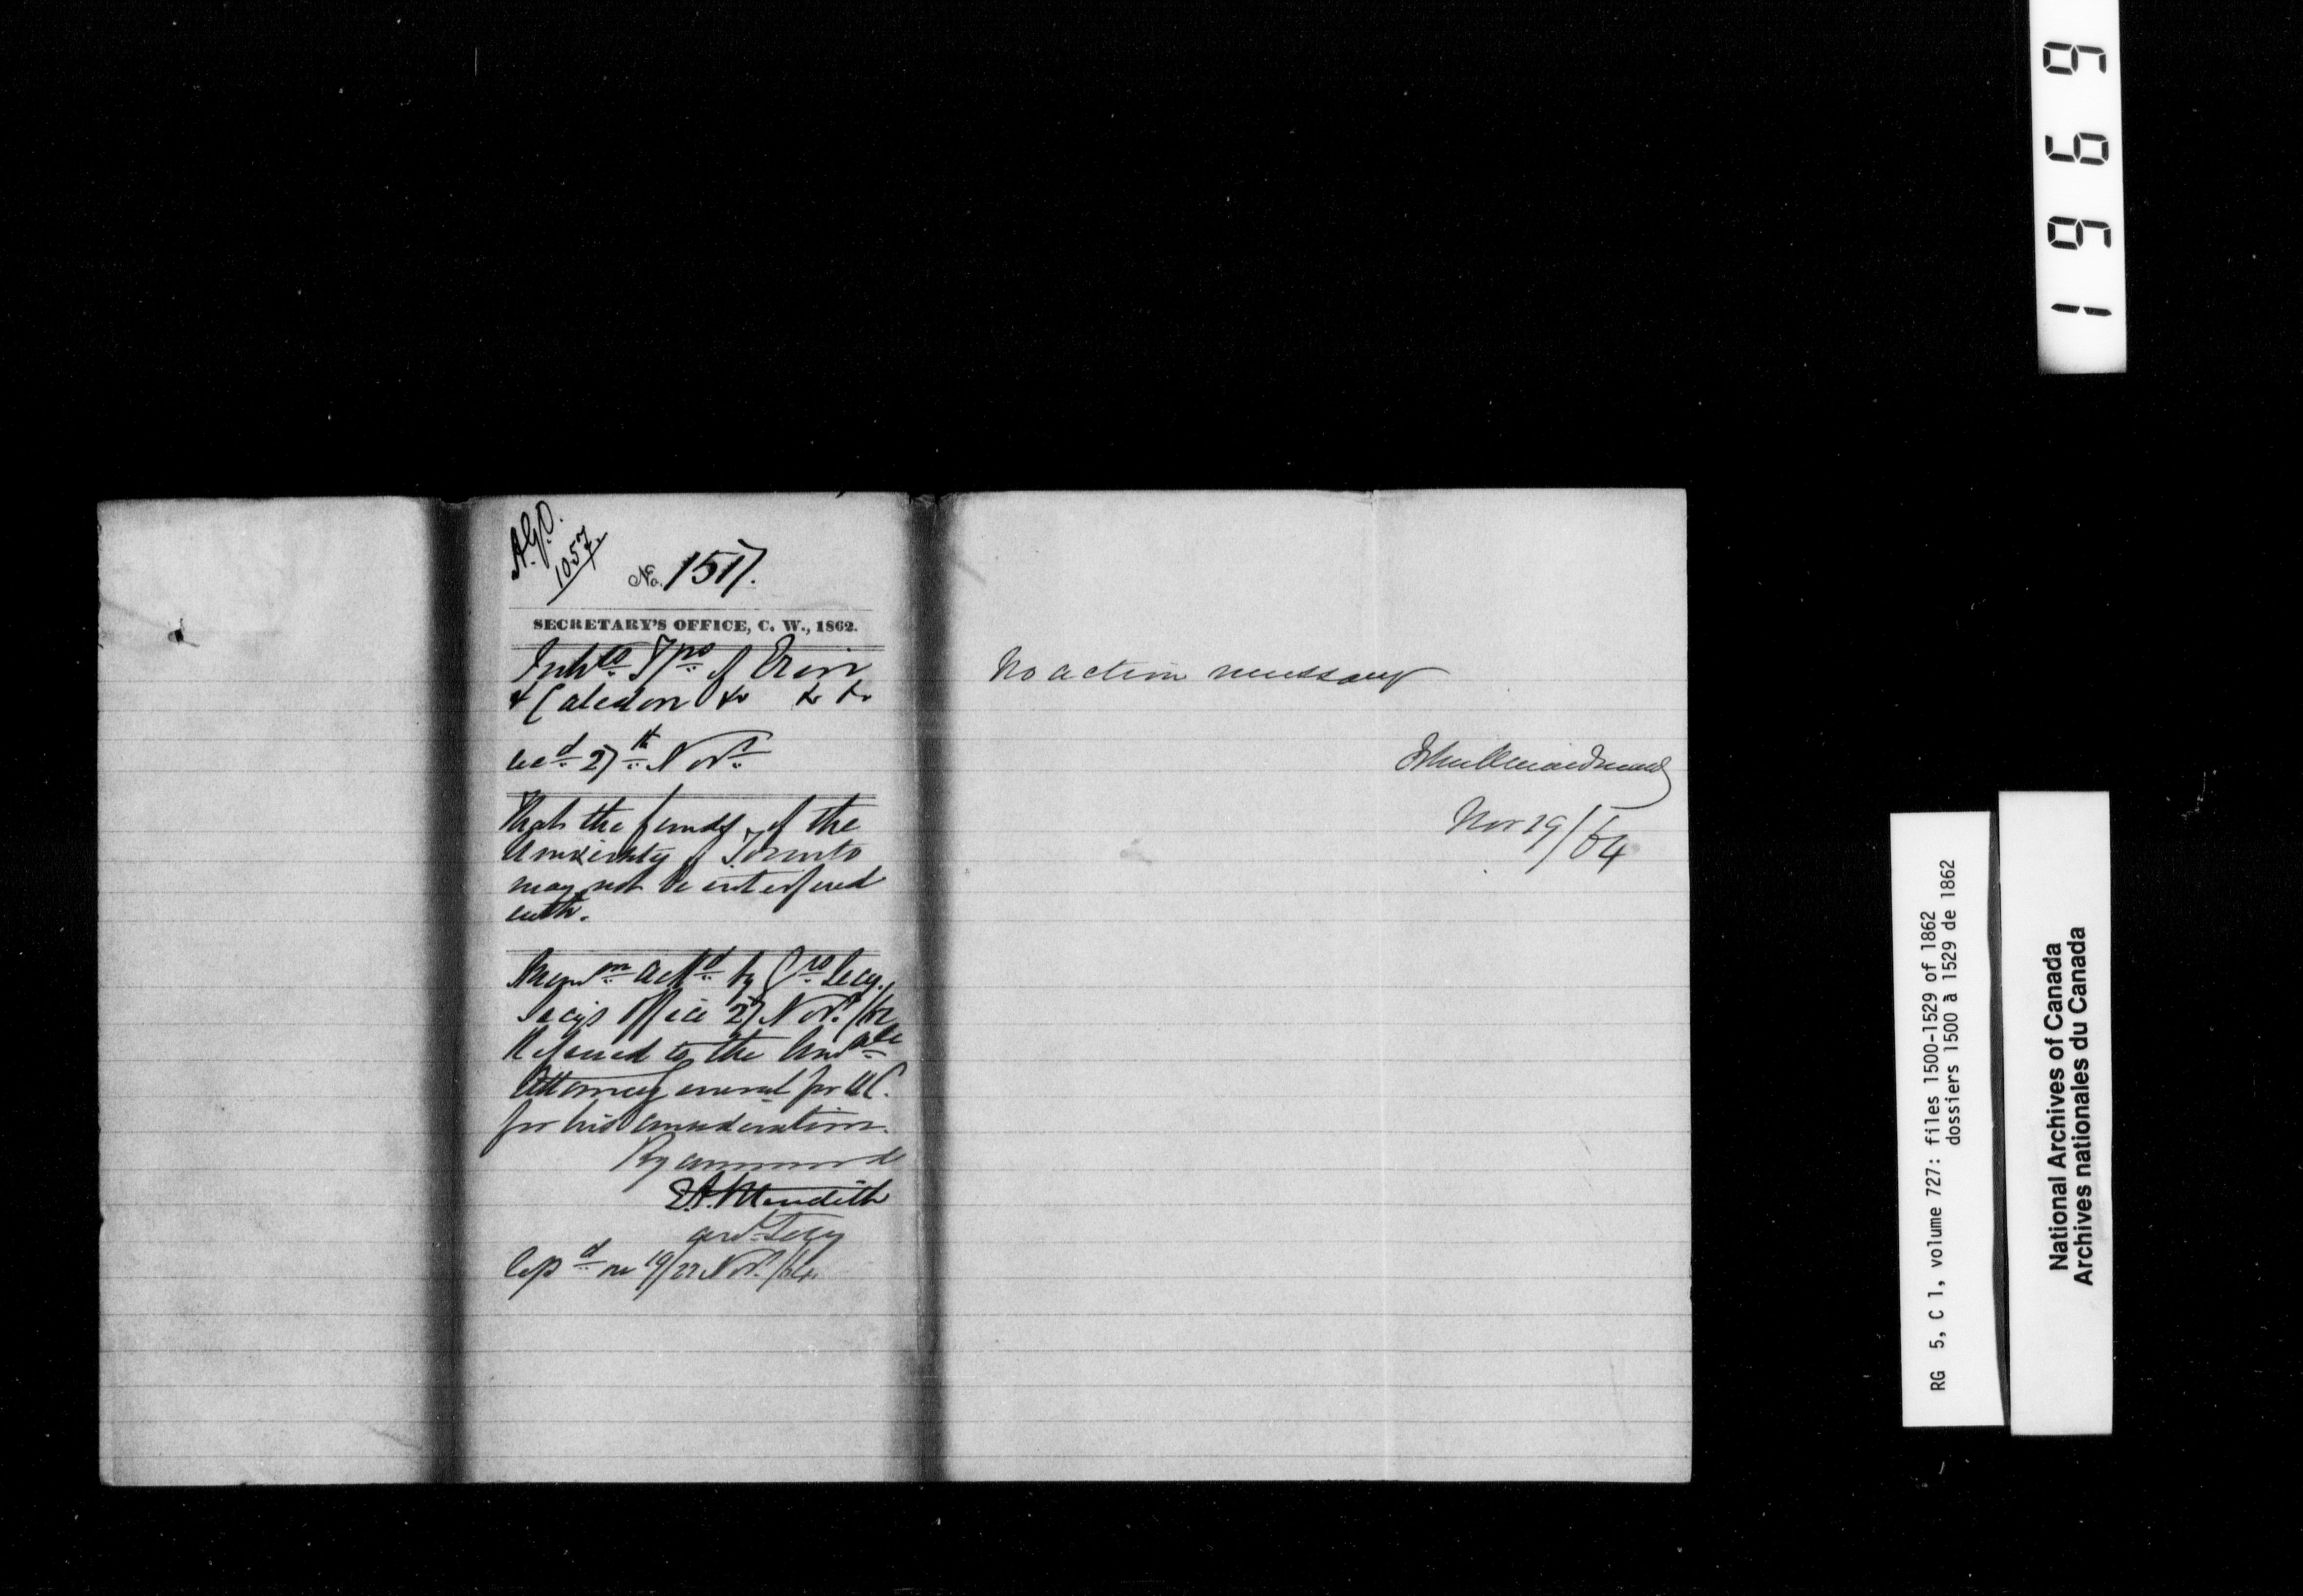 A.G.O.
1057.
No. 1517.
SECRETARY'S OFFICE, C. W., 1862.
Inhts. Tps. of Erin
& Caledon &c &c &c
Recd. 27th. Novr.
That the funds of the
University of Toronto
may not be interfered
with.
ackd. by Pro. Secy.
Secy's Office 27 Novr. /62
Referred to the Honable
Attorney General for U.C.
for his consideration.
By command
E.A. Meredith
Asst. Secy
on 19/22 Novr. /64.
No action necessary
John A Macdonald
Nov 29/64
1969
RG 5, C 1, volume 727: files 1500-1529 of 1862
dossiers 1500 à 1529 de 1862
National Archives of Canada
Archives nationales du Canada